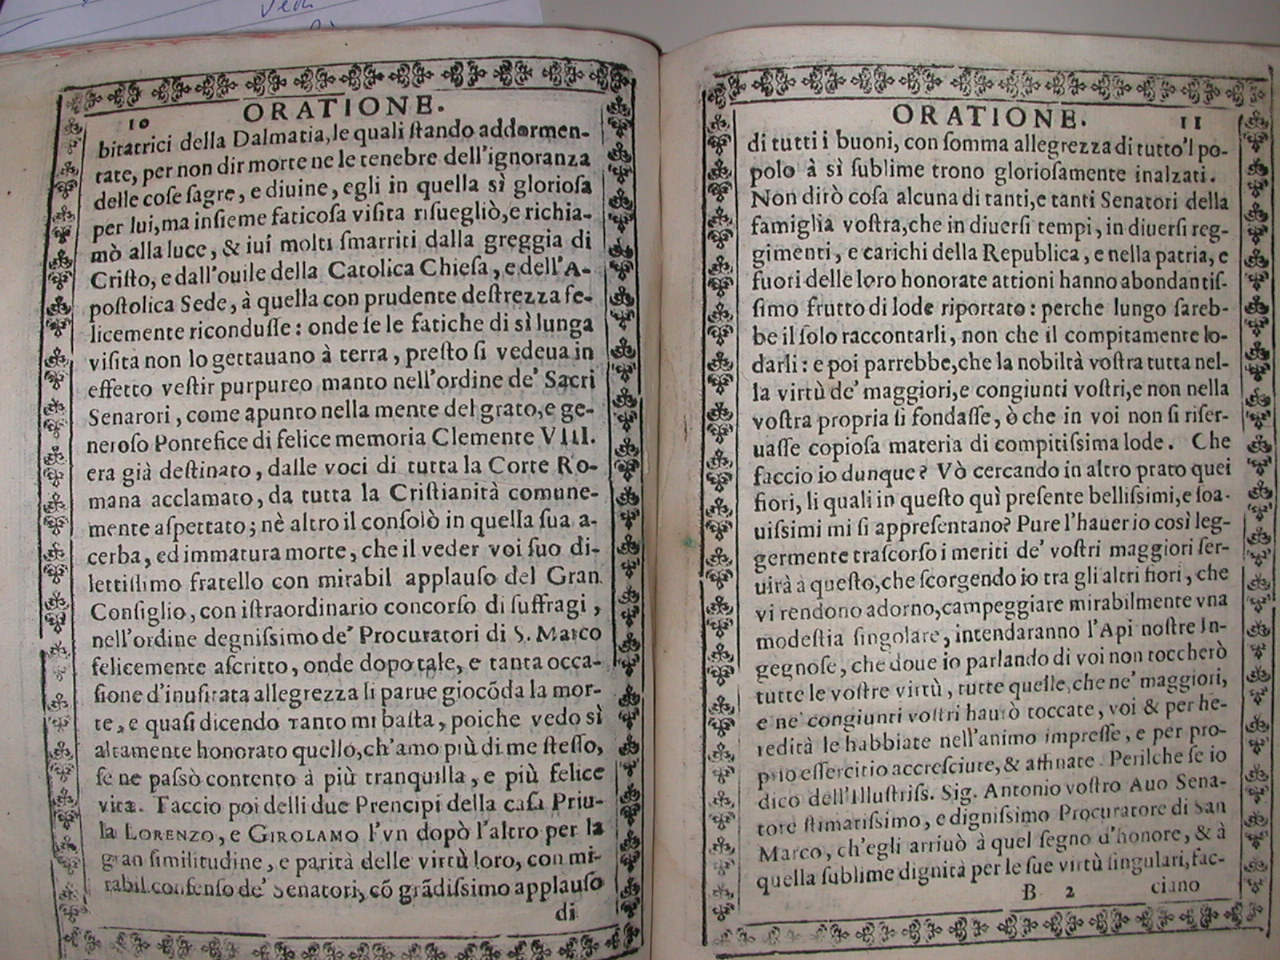 Vedi
ORATIONE.
10
bitatrici della Dalmatia, le quali ſtando addormen-
tate, per non dir morte ne le tenebre dell'ignoranza
delle coſe ſagre, e diuine, egli in quella sì glorioſa
per lui, ma inſieme faticoſa viſita riſuegliò, e richia-
mò alla luce, & iui molti ſmarriti dalla greggia di
Criſto, e dall'ouile della Catolica Chieſa, e dell'A-
poſtolica Sede, à quella con prudente deſtrezza fe-
licemente riconduſſe: onde ſe le fatiche di sì lunga
viſita non lo gettauano à terra, preſto ſi vedeua in
effetto veſtir purpureo manto nell'ordine de' Sacri
Senarori, come apunto nella mente del grato, e ge-
neroſo Pontefice di felice memoria Clemente VIII.
era già deſtinato, dalle voci di tutta la Corte Ro-
mana acclamato, da tutta la Criſtianità comune-
mente aſpettato; nè altro il conſolò in quella ſua a-
cerba, ed immatura morte, che il veder voi ſuo di-
lettiſſimo fratello con mirabil applauſo del Gran
Conſiglio, con iſtraordinario concorſo di ſuffragi,
nell'ordine degniſsimo de' Procuratori di S. Marco
felicemente aſcritto, onde dopo tale, e tanta occa-
ſione d'inuſitata allegrezza li parue giocõda la mor-
te, e quaſi dicendo Tanto mi baſta, poiche vedo sì
altamente honorato quello, ch'amo più di me ſteſſo,
ſe ne paſsò contento à più tranquilla, e più felice
vita. Taccio poi delli due Prencipi della caſa Priu-
la LORENZO, e GIROLAMO l'vn dopò l'altro per la
gran ſimilitudine, e parità delle virtù loro, con mi-
rabil conſenſo de' Senatori, cõ grãdiſsimo applauſo
di
ORATIONE.
11
di tutti i buoni, con ſomma allegrezza di tutto'l po-
polo à sì ſublime trono glorioſamente inalzati.
Non dirò coſa alcuna di tanti, e tanti Senatori della
famiglia voſtra, che in diuerſi tempi, in diuerſi reg-
gimenti, e carichi della Republica, e nella patria, e
fuori delle loro honorate attioni hanno abondantiſ-
ſimo frutto di lode riportato: perche lungo ſareb-
be il ſolo raccontarli, non che il compitamente lo-
darli: e poi parrebbe, che la nobiltà voſtra tutta nel-
la virtù de' maggiori, e congiunti voſtri, e non nella
voſtra propria ſi fondaſſe, ò che in voi non ſi riſer-
uaſſe copioſa materia di compitiſsima lode. Che
faccio io dunque? Vò cercando in altro prato quei
fiori, li quali in queſto quì preſente belliſsimi, e ſoa-
uiſsimi mi ſi appreſentano? Pure l'hauer io così leg-
germente traſcorſo i meriti de' voſtri maggiori ſer-
uirà à queſto, che ſcorgendo io tra gli altri fiori, che
vi rendono adorno, campeggiare mirabilmente vna
modeſtia ſingolare, intendaranno l'Api noſtre In-
gegnoſe, che doue io parlando di voi non toccherò
tutte le voſtre virtù, tutte quelle, che ne' maggiori,
e ne' congiunti voſtri haurò toccate, voi & per he-
redità le habbiate nell'animo impreſſe, e per pro-
prio eſſercitio accreſciute, & affinate. Perilche ſe io
dico dell'Illuſtriſs. Sig. Antonio voſtro Auo Sena-
tore ſtimatiſsimo, e digniſsimo Procuratore di San
Marco, ch'egli arriuò à quel ſegno d'honore, & à
quella ſublime dignità per le ſue virtù ſingulari, fac-
B 2
ciano